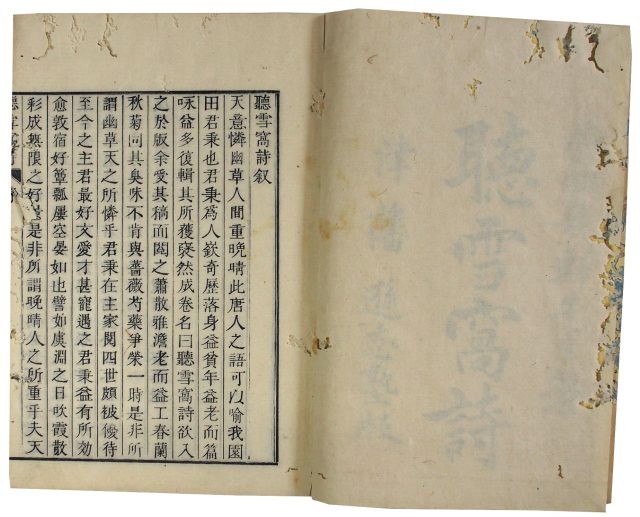 聽雪窩詩
聽雪窩詩叙
天意憐幽草人間重晚晴此唐人之語可以喻我園
田君秉也君秉為人嶔奇歷落身益貧年益老而篇
咏益多復輯其所獲裒然成卷名曰聽雪窩詩欲入
之於版余受其稿而閲之蕭散雅澹老而益工春蘭
秋菊同其臭味不肯與薔薇芍藥爭榮一時是非所
謂幽草天之所憐乎君秉在主家閲四世頗被優待
至今之主君最好文愛才甚寵遇之君秉益有所効
愈敦宿好簞瓢屢空晏如也譬如虞淵之日吹霞散
彩成無限之好是非所謂晚晴人之所重乎夫天